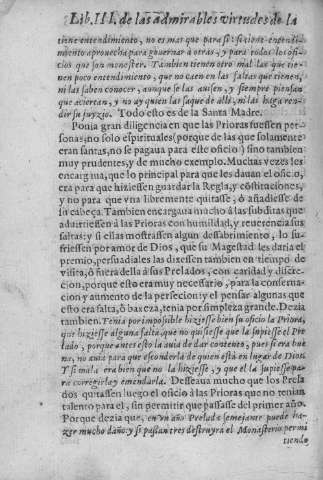 Lib. III. de las admirables virtudes de la
tiene entendimiento, no es mas que para si: si tiene entendi-
miento aprouecha para gouernar a otras, y para todos los ofi-
cios que son menester. Tambien tienen otro mal las que tie-
nen poco entendimiento, que no caen en las faltas que tienen,
ni las saben conocer, aunque se las auisen, y siempre piensan
que aciertan, y no ay quien las saque de alli, ni las haga ren-
dir su juyzio. Todo esto es de la Santa Madre.
Ponia gran diligencia en que las Prioras fuessen per-
sonas, no solo espirituales (porque de las que solamente
eran santas, no se pagaua para este oficio) sino tambien
muy prudentes, y de mucho exemplo. Muchas vezes les
encargaua, que lo principal para que les dauan el oficio,
era para que hiziessen guardar la Regla, y cõstituciones,
y no para que vna libremente quitasse, ò añadiesse de
su cabeça. Tambien encargaua mucho à las subditas que
aduirtiessen à las Prioras con humildad, y reuerencia sus
faltas: y si ellas mostrassen algun dessabrimiento, lo su-
friessen por amor de Dios, que su Magestad les daria el
premio, persuadiales las dixessen tambien en tiempo de
visita, ò fuera della à sus Prelados, con caridad y discre-
cion, porque esto era muy necessario, para la conserua-
cion y aumento de la perfecion: y el pensar algunas que
esto era falta, ò baxeza, tenia por simpleza grande. Dezia
tambien. Tenia por impossible hiziesse bien su oficio la Priora,
que hiziesse alguna falta, que no quisiesse que la supiesse el Pre
lado, porque antes esto la auia de dar contento, pues si era bue
na, no auia para que esconderla de quien està en lugar de Dios.
Y si mala era bien que no la hiziesse, y que el la supiesse pa-
ra corregirla y emendarla. Desseaua mucho que los Prela
dos quitassen luego el oficio à las Prioras que no tenian
talento para el, sin permitir que passasse del primer año.
Porque dezia que, en vn año Prelada semejante puede ha-
zer mucho daño: y si passan tres destruyra el Monasterio permi
tiendo